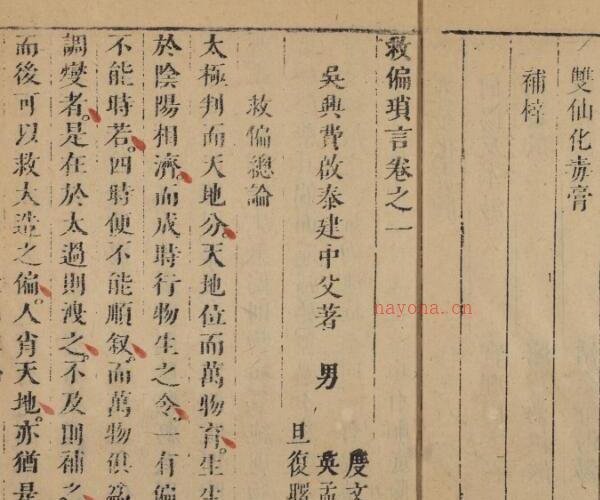 雙仙化毒膏
補梓
救偏瑣言卷之一
吳興費啟泰建中父著 男
慶文
英孟
旦復
救偏總論
太極判而天地分。天地位而萬物育。生生
於陰陽相濟。而成時行物生之令。一有偏
不能時若。四時便不能順叙。而萬物俱
調燮者。是在於太過則洩之。不及則補之
而後可以救大造之偏。人肖天地。亦猶是
nayona.cn